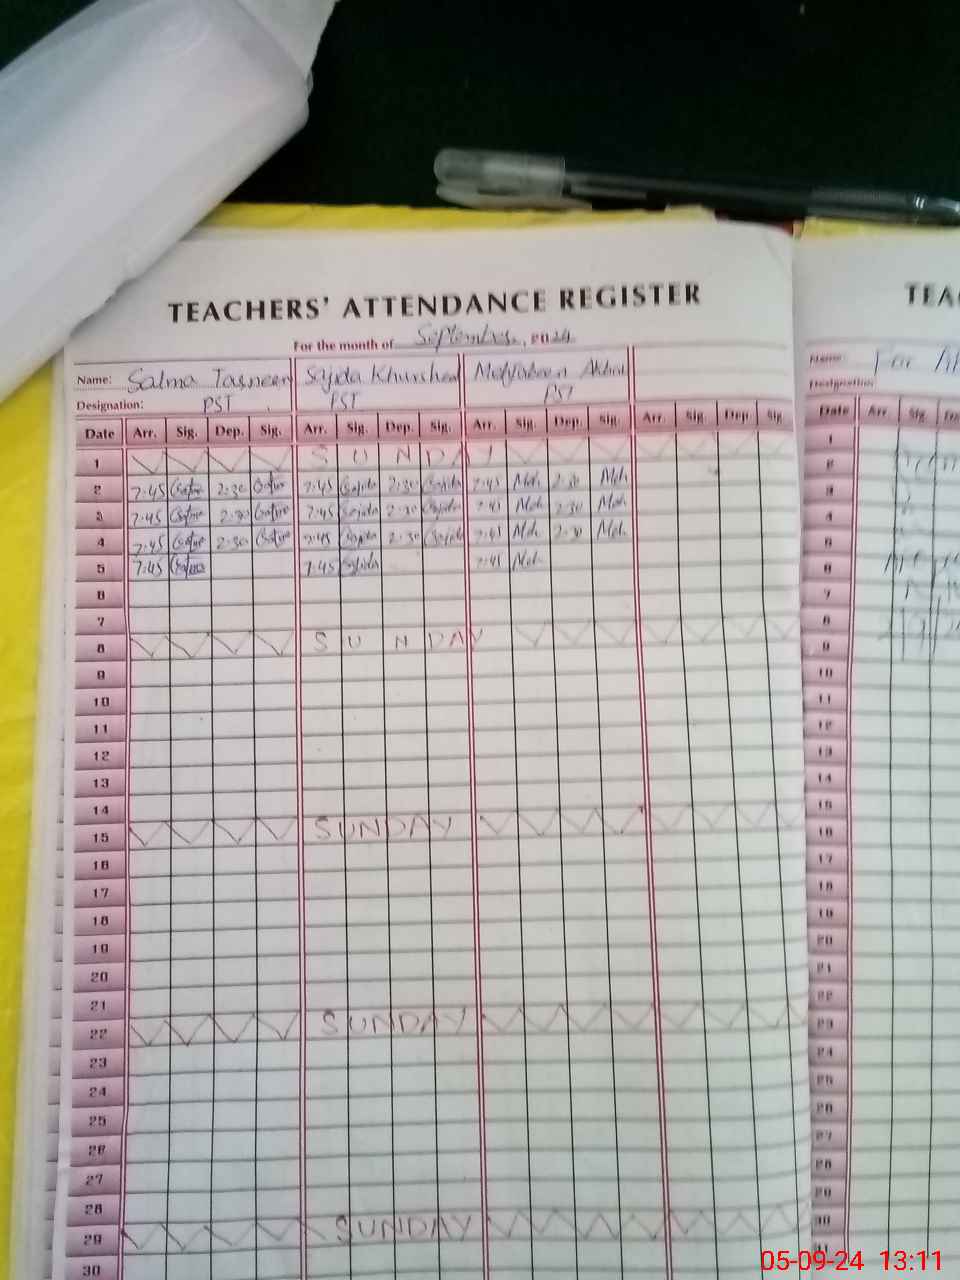 TEACHERS' ATTENDANCE REGISTER
For the month of September, 2024
Name: Salma Tasneem Sajida Khursheed Mehjabeen Akhtar
Designation: PST PST PST
Date Arr. Sig. Dep. Sig. Arr. Sig. Dep. Sig. Arr. Sig. Dep. Sig. Arr. Sig. Dep. Sig.
1 SUNDAY
2 7:45 2:30 7:45 Sajida 2:30 Sajida 7:45 Meh 2:30 Meh
3 7:45 2:30 7:45 Sajida 2:30 Sajida 7:45 Meh 2:30 Meh
4 7:45 2:30 7:45 Sajida 2:30 Sajida 7:45 Meh 2:30 Meh
5 7:45 7:45 Sajida 7:45 Meh
6
7
8 SUNDAY
9
10
11
12
13
14
15 SUNDAY
16
17
18
19
20
21
22 SUNDAY
23
24
25
26
27
28
29 SUNDAY
30
TEA
Name: For
Designation:
Date Arr. Sig.
1
2
3
4
5
6
7
8
9
10
11
12
13
14
15
16
17
18
19
20
21
22
23
24
25
26
27
28
29
30
31
05-09-24 13:11